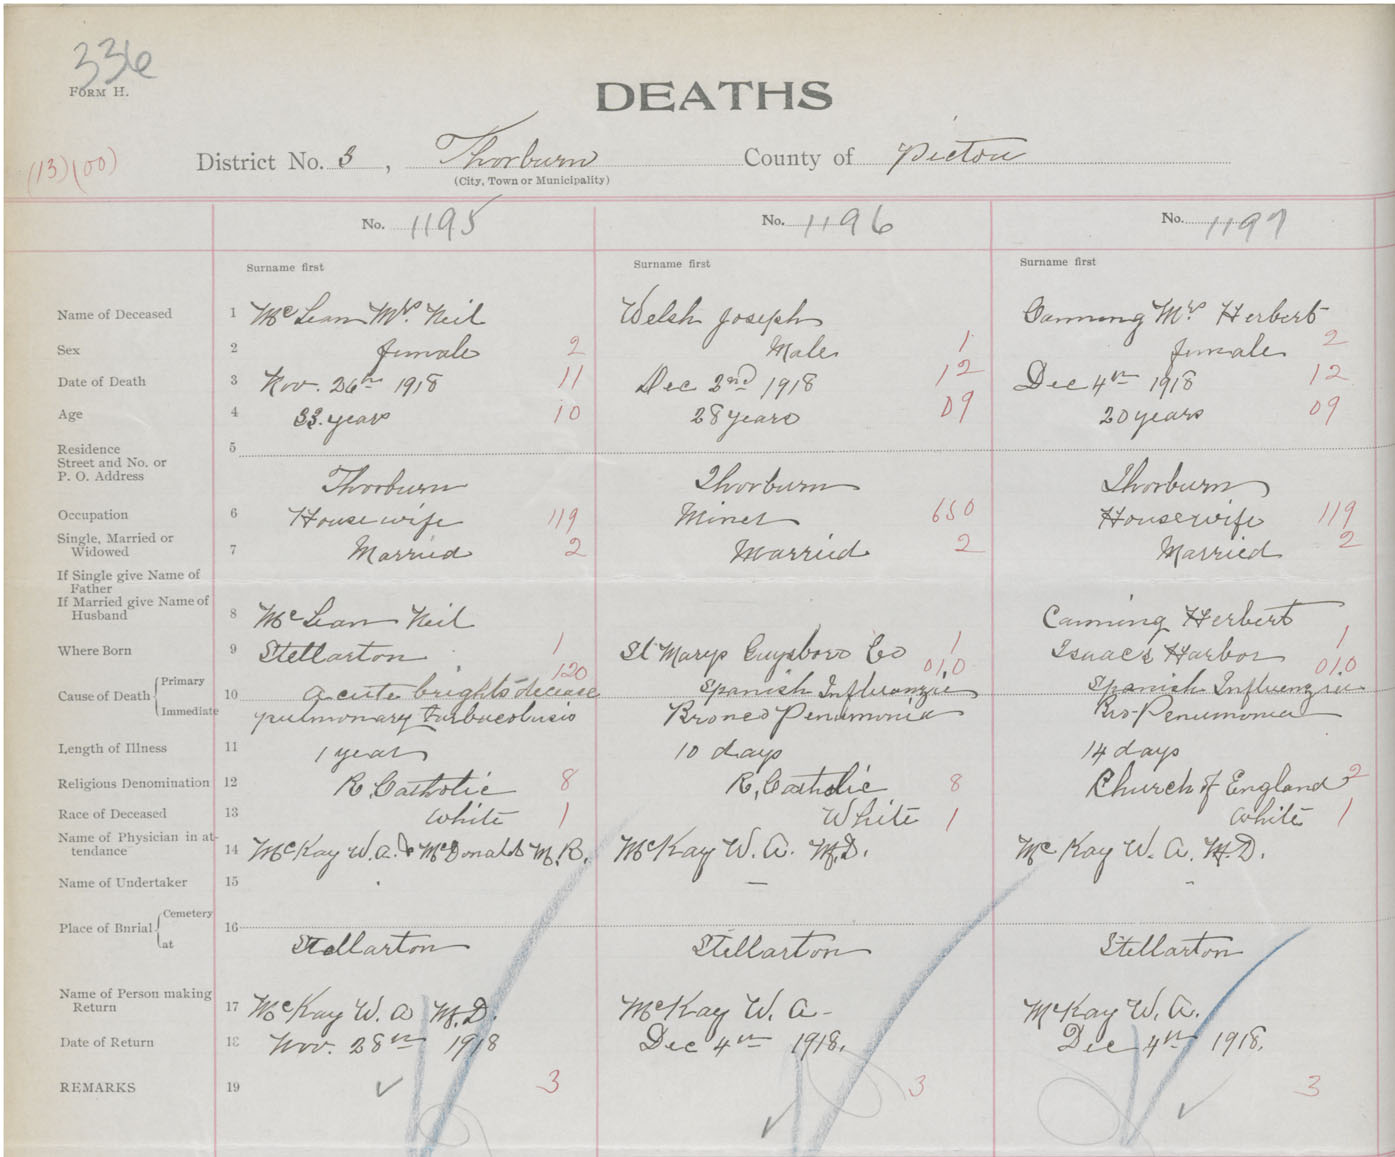 336
FORM H.
DEATHS
(13)(00)
District No. 3, Thorburn County of Pictou
(City, Town or Municipality)
No. 1195 No. 1196 No. 1197
Surname first Surname first Surname first
Name of Deceased 1 McLean Mrs. Neil Welsh Joseph Canning Mrs Herbert
Sex 2 female 2 Male 1 female 2
Date of Death 3 Nov. 26th 1918 11 Dec 2nd 1918 12 Dec 4th 1918 12
Age 4 33 years 10 28 years 09 20 years 09
Residence 5
Street and No. or
P. O. Address Thorburn Thorburn Thorburn
Occupation 6 Housewife 119 Miner 650 Housewife 119
Single, Married or
Widowed 7 Married 2 Married 2 Married 2
If Single give Name of
Father
If Married give Name of
Husband 8 McLean Neil Canning Herbert
Where Born 9 Stellarton 1 St Marys Guysboro Co 1 Isaac's Harbor 1
120 010 010
Cause of Death Primary 10 acute brights decease Spanish Influenzie Spanish Influenzie
Immediate pulmonary Turbucolusis Bronco Penumonia Bro-Penumonia
Length of Illness 11 1 year 10 days 14 days
Religious Denomination 12 R, Catholic 8 R, Catholic 8 Church of England 2
Race of Deceased 13 White 1 White 1 White 1
Name of Physician in at-
tendance 14 McKay W.A. & McDonald M.R. McKay W. A. M.D. McKay W. A. M.D.
Name of Undertaker 15 —
Place of Burial Cemetery 16
at Stellarton Stellarton Stellarton
Name of Person making
Return 17 McKay W. A M.D. McKay W. A- McKay W. A.
Date of Return 18 Nov. 28th 1918 Dec 4th 1918. Dec 4th 1918.
REMARKS 19 3 3 3